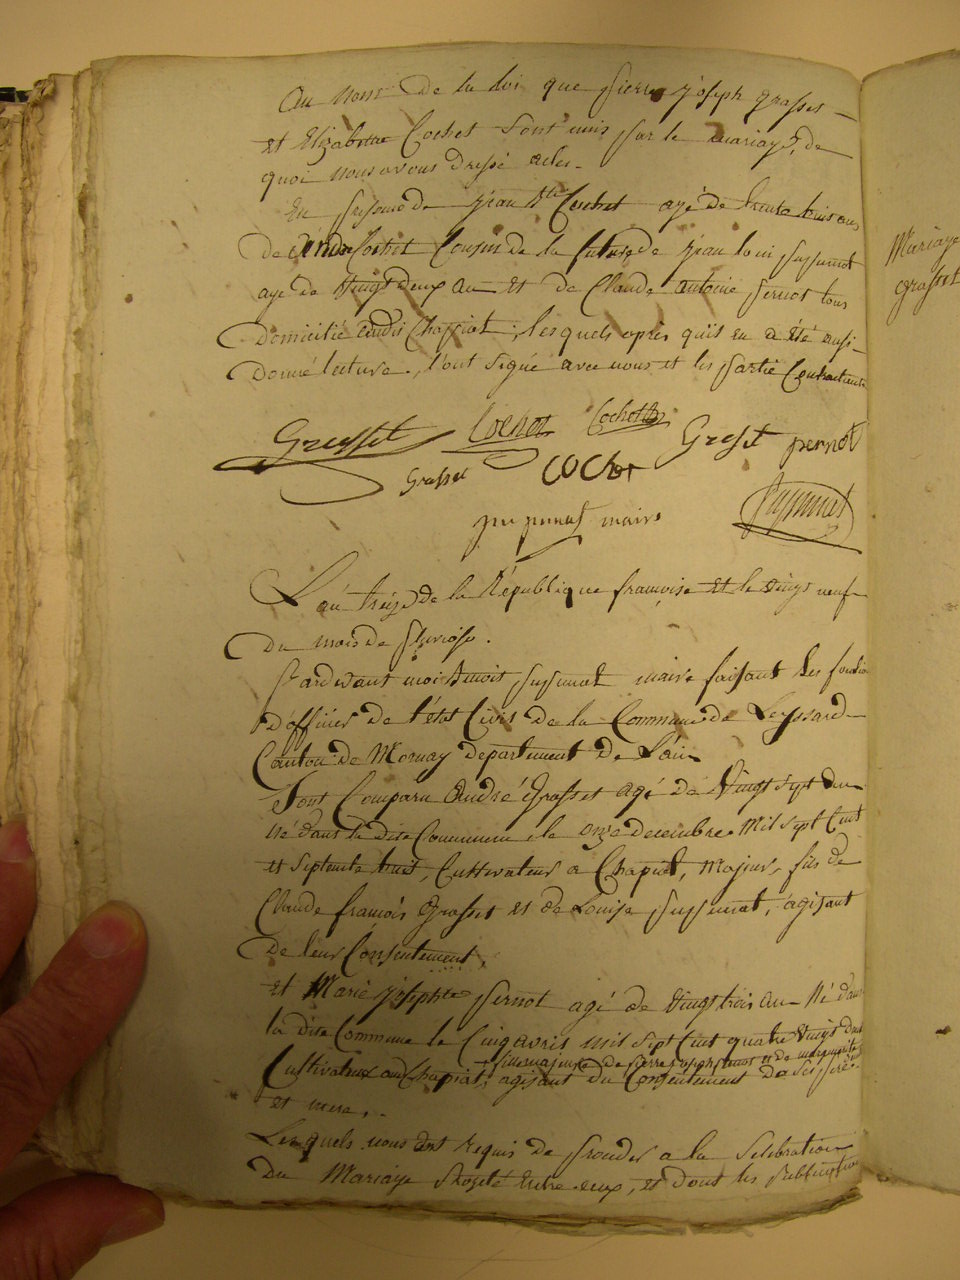 Au nom de la loi que pierre joseph grasset
et Elizabette Cochet sont unis par le mariage, de
quoi nous avons dressé acte.
En presence de jean Bte Cochet agé de trente trois ans
de Cochet Cousin de la future de jean loui
age de vingt deux an et de Claude antoine pernot tous
domicilié audit Chapiat, lesquels après qu'il en a été aussi
donné lecture, l'ont signé avec nous et les partie Contractante
Mariage
grasset
Grasset Cochet Cochet Grasset pernot
Grasset Cochet
maire
L'an treize de la République françoise et le vingt neuf
du mois de pluviose.
Pardevant moi maire faisant les fonction
d'officier de l'état Civil de la Commune de Leyssard
Canton de Mornay departement de L'ain
Sont Comparu André Grasset agé de vingt sept an
né dans la dite Commune le onze decembre Mil sept Cent
et septente huit, Cultivateur a Chapiat, Majeur, fils de
Claude françois Grasset et de Louise agisant
de leur Consentement,
et Marie josephte pernot agé de vingt trois an Né dans
la dite Commune le Cinq avril mil sept Cent quatre vingt deux
fille majeure de pierre joseph pernot et de marguerite
Cultivateur au Chapiat, agisant du Consentement de ses pere
et mere,
Lesquels nous ont requis de proceder a la Selebration
du Mariage projeté entre eux, et dont les publication